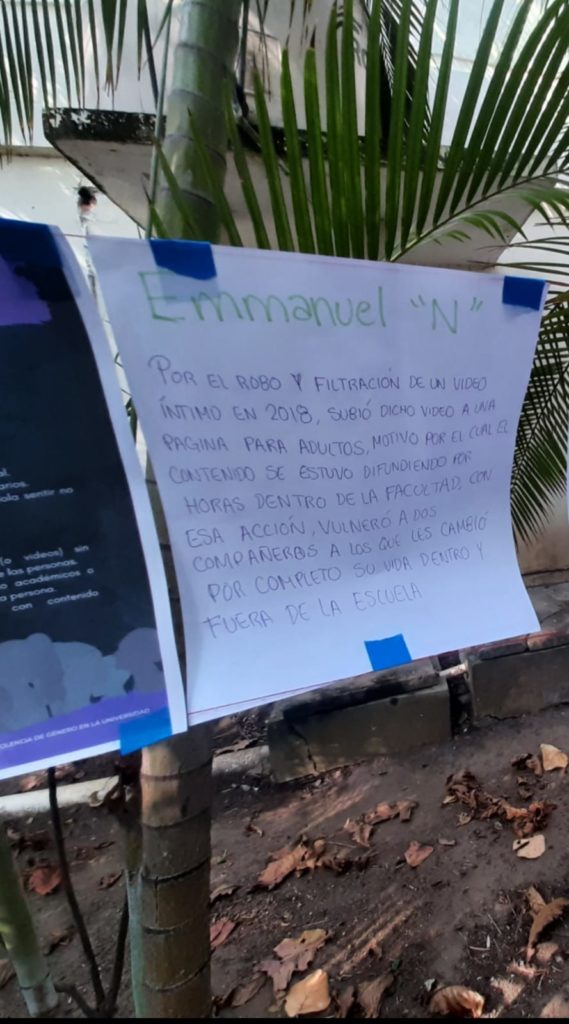 l.
arios.
ola sentir no
(o videos) sin
e las personas.
o académicos o
a persona.
con contenido
OLENCIA DE GÉNERO EN LA UNIVERSIDAD
Emmanuel "N"
POR EL ROBO Y FILTRACIÓN DE UN VIDEO
ÍNTIMO EN 2018, SUBIÓ DICHO VIDEO A UNA
PAGINA PARA ADULTOS, MOTIVO POR EL CUAL EL
CONTENIDO SE ESTUVO DIFUNDIENDO POR
HORAS DENTRO DE LA FACULTAD. CON
ESA ACCIÓN, VULNERÓ A DOS
COMPAÑEROS A LOS QUE LES CAMBIÓ
POR COMPLETO SU VIDA DENTRO Y
FUERA DE LA ESCUELA